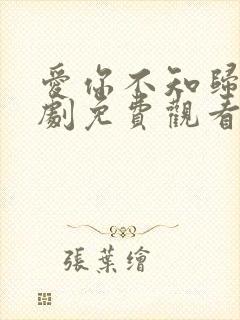 愛你不知歸
劇免費觀看
張葉繪